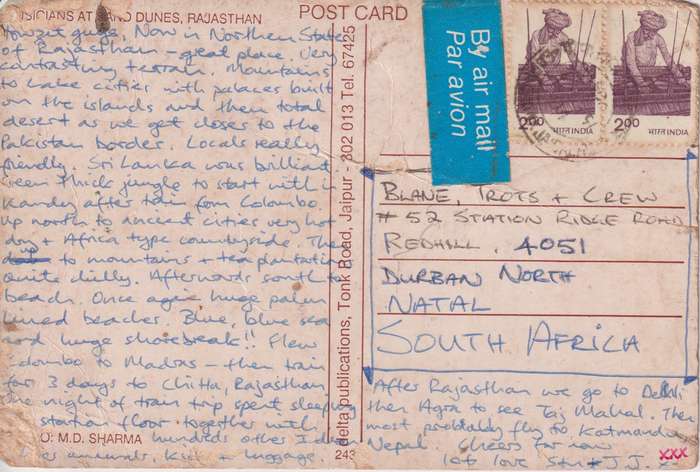 SICIANS AT SAND DUNES, RAJASTHAN
POST CARD
Howzit guys. Now in Northern State
of Rajasthan - great place. Very
contrasting terrain. Mountains
to Lake cities with palaces built
on the islands and then total
desert as we get closer to the
Pakistan border. Locals really
friendly. Sri Lanka was brilliant
Green thick jungle to start with in
Kandy after train from Colombo.
up north to ancient cities very hot
dry + Africa type countryside. Then
up to mountains + tea plantation
quite chilly. Afterwards south to
beach. Once again huge palm
lined beaches. Blue, blue sea
and huge shorebreak!! Flew
Colombo to Madras - then train
for 3 days to Chitta, Rajasthan
One night of train trip spent sleeping
station floor together with
hundreds other Indians
animals, kids + luggage.
O: M.D. SHARMA
delta publications, Tonk Road, Jaipur - 302 013 Tel. 67425
243
By air mail
Par avion
2.00
भारत INDIA
2.00
भारत INDIA
BLANE, TROTS + CREW
# 52 STATION RIDGE ROAD
REDHILL. 4051
DURBAN NORTH
NATAL
SOUTH AFRICA
After Rajasthan we go to Delhi
then Agra to see Taj Mahal. Then
most probably fly to Katmandu
Nepal. Cheers for now
lots love
xxx